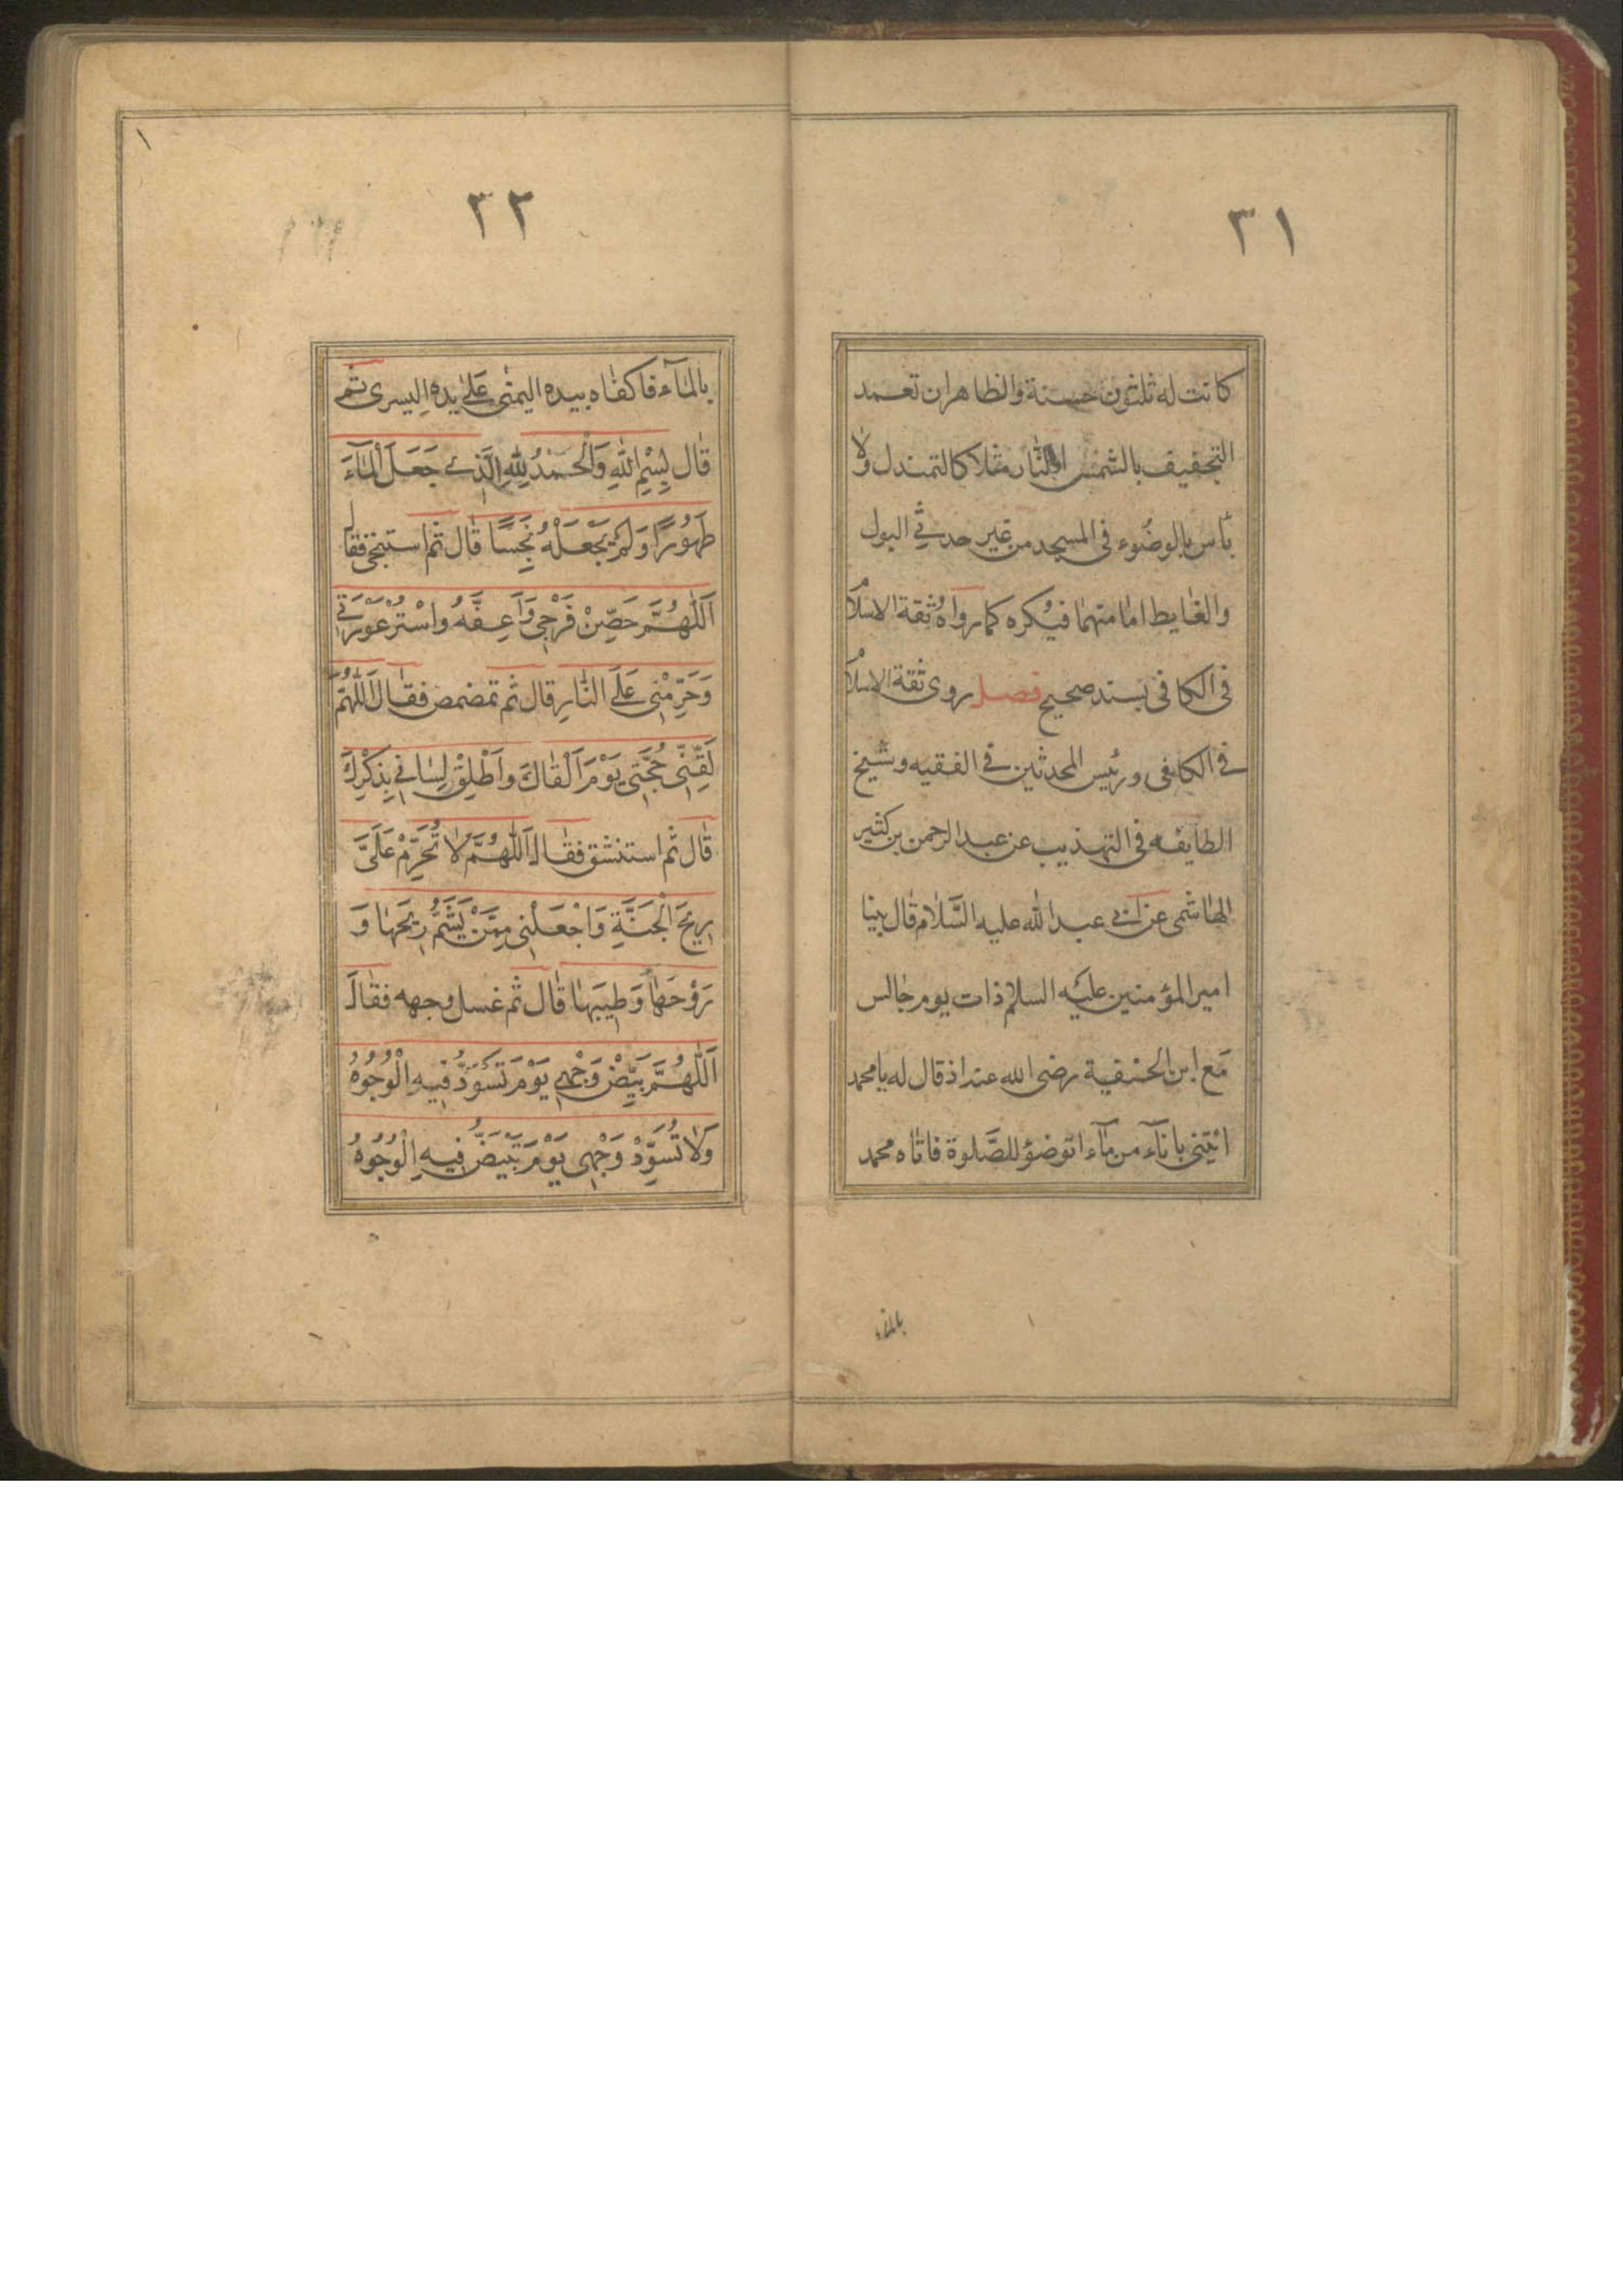 ٣١
كانت له ثلثون حسنة والظاهر ان تعمد
التجفيف بالشمس او النار مثلا كالتمندل ولا
بأس بالوضوء فى المسجد من غير حدثي البول
والغايط اما منهما فيكره كما رواه ثقة الاسلا
فى الكافى بسند صحيح فصل روى ثقة الاسلا
فى الكافى ورئيس المحدثين فى الفقيه وشيخ
الطايفه فى التهذيب عن عبد الرحمن بن كثير
الهاشمى عن ابى عبد الله عليه السَّلام قال بينا
امير المؤمنين عليه السلام ذات يوم جالس
مَع ابن الحنفية رضى الله عنه اذ قال له يا محمد
ائتِنى باناۤء من ماۤء اتوضؤ للصَّلوة فاتاه محمد
بالماء
٣٢
بالمۤاء فاكفاه بيده اليمنى عَلى يده اليسرى ثم
قال بِسْمِ اللهِ وَالْحَمْدُ لِلهِ الَّذى جَعَلَ الْمۤاءَ
طَهُورًا وَلَمْ يَجْعَلْهُ نَجِسًا قال ثم استنجى فقال
اَللّٰهُمَّ حَصِّنْ فَرْجى وَاَعِفَّهُ وَاسْتُرْ عَوْرَتى
وَحَرِّمْنى عَلَى النَّارِ قال ثم تمضمض فقال اَللّٰهُمَّ
لَقِّنّى حُجَّتى يَوْمَ اَلْقاكَ وَاَطْلِقْ لِسانى بِذِكْرِكَ
قال ثم استنشق فقال اَللّٰهُمَّ لا تُحَرِّمْ عَلَىَّ
ريحَ الْجَنَّةِ وَاجْعَلْنى مِمَّنْ يَشَمُّ ريحَها وَ
رَوْحَها وَطيبَها قال ثم غسل وجهه فقال
اَللّٰهُمَّ بَيِّضْ وَجْهى يَوْمَ تَسْوَدُّ فيهِ الْوُجُوهُ
وَلا تُسَوِّدْ وَجْهى يَوْمَ تَبْيَضُّ فيهِ الْوُجُوهُ